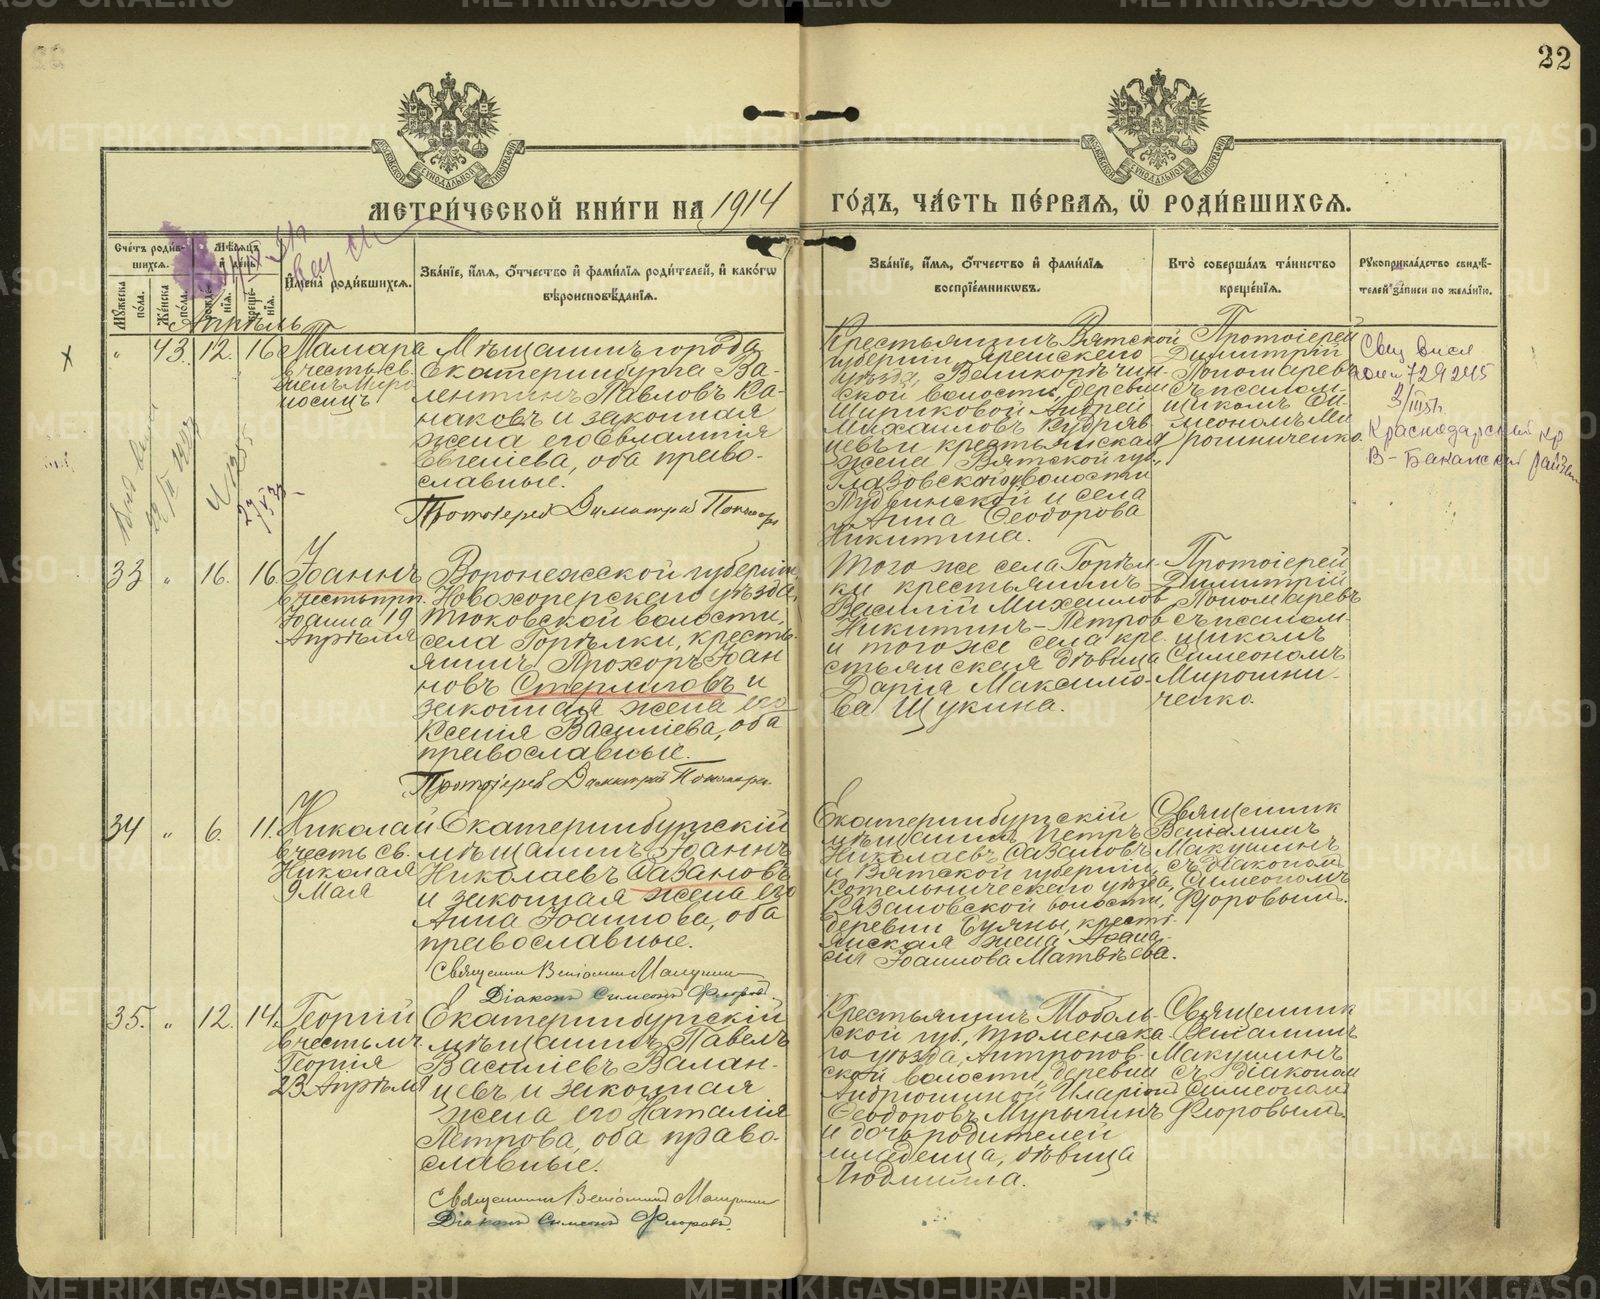 22
МЕТРИ́ЧЕСКОЙ КНИ́ГИ НА 1914
ГО́ДЪ, ЧА́СТЬ ПЕ́РВАЯ, Ѿ РОДИ́ВШИХСЯ.
Сче́тъ роди́в-
шихся.
Му́жеска по́ла.
Же́нска по́ла.
Мѣ́сяцъ
и҆ де́нь
рожде́нїя.
креще́нїя.
И҆мена̀ роди́вшихся.
Зва́нїе, и҆́мя, ѻ҆́тчество и҆ фами́лїя роди́телей, и҆ како́гѡ
вѣроисповѣ́данїя.
Зва́нїе, и҆́мя, ѻ҆́тчество и҆ фами́лїя
воспрїе́мникѡвъ.
Кто̀ соверша́лъ та́инство
креще́нїя.
Рꙋкоприкла́дство свидѣ́-
телей за́писи по жела́нїю.
Апрѣль
" 43. 12. 16
Тамара
в честь св.
женъ Миро
носицъ
Мѣщанинъ города
Екатеринбурга Ва-
лентинъ Павловъ Ка-
наковъ и законная
жена его Евлампія
Евгеніева, оба право-
славные.
Протоіерей Димитрій Пономарев
Крестьянинъ Вятской
губерніи Яренскаго
уѣзда, Великорѣчин-
ской волости, деревни
Шириковой Андрей
Михаиловъ Кудряв
цевъ и крестьянская
жена Вятской губ.,
Глазовской волости
Пудвинской и села
Анна Ѳеодорова
Никитина.
Протоіерей
Димитрій
Пономаревъ
съ псалом-
щикомъ Си-
меономъ Ми
рошниченко.
729245
3/III 51 г.
Краснодарский кр
В- Баканский район
33 " 16. 16.
Іоаннъ
в честь прп.
Іоанна 19
Апрѣля
Воронежской губерніи,
Новохоперскаго уѣзда,
Тюковской волости,
села Горѣлки, кресть-
янинъ Прохоръ Іоан
новъ Стерлиговъ и
законная жена его
Ксенія Василіева, оба
православные.
Протоіерей Димитрій Пономарев
Того же села Горѣл-
ки крестьянинъ
Василій Михаилов
Никитинъ-Петров
и того же села кре-
стьянская дѣвица
Дарія Максимо-
ва Щукина.
Протоіерей
Димитрій
Пономаревъ
съ псалом-
щикомъ
Симеономъ
Мирошни-
ченко.
34 " 6. 11.
Николай
в честь св.
Николая
9 Мая
Екатеринбургскій
мѣщанинъ Іоаннъ
Николаевъ Сазановъ
и законная жена его
Анна Іоаннова, оба
православные.
Священник Веніамин Макушин
Діаконъ Симеонъ Флоровъ
Екатеринбургскій
мѣщанинъ Петръ
Николаевъ Сазановъ
и Вятской губерніи,
Котельническаго уѣзда,
Казаковской волости,
деревни Буяны, кресть-
янская жена Афана-
сія Іоаннова Матвѣева.
Священник
Веніаминъ
Макушинъ
съ діаконом
Симеономъ
Флоровымъ.
35. " 12. 14.
Георгій
в честь мч.
Георгія
23 Апрѣля
Екатеринбургскій
мѣщанинъ Павелъ
Василіевъ Валан-
цевъ и законная
жена его Наталія
Петрова, оба право-
славные.
Священник Веніамин Макушин
Діаконъ Симеонъ Флоровъ.
Крестьянинъ Тоболь-
ской губ., Тюменска-
го уѣзда, Антропов-
ской волости, деревни
Андрюшиной Иларіон
Ѳеодоровъ Мурыгинъ
и дочь родителей
младенца, дѣвица
Людмилла.
Священник
Веніаминъ
Макушинъ
съ діаконом
Симеоном
Флоровымъ.